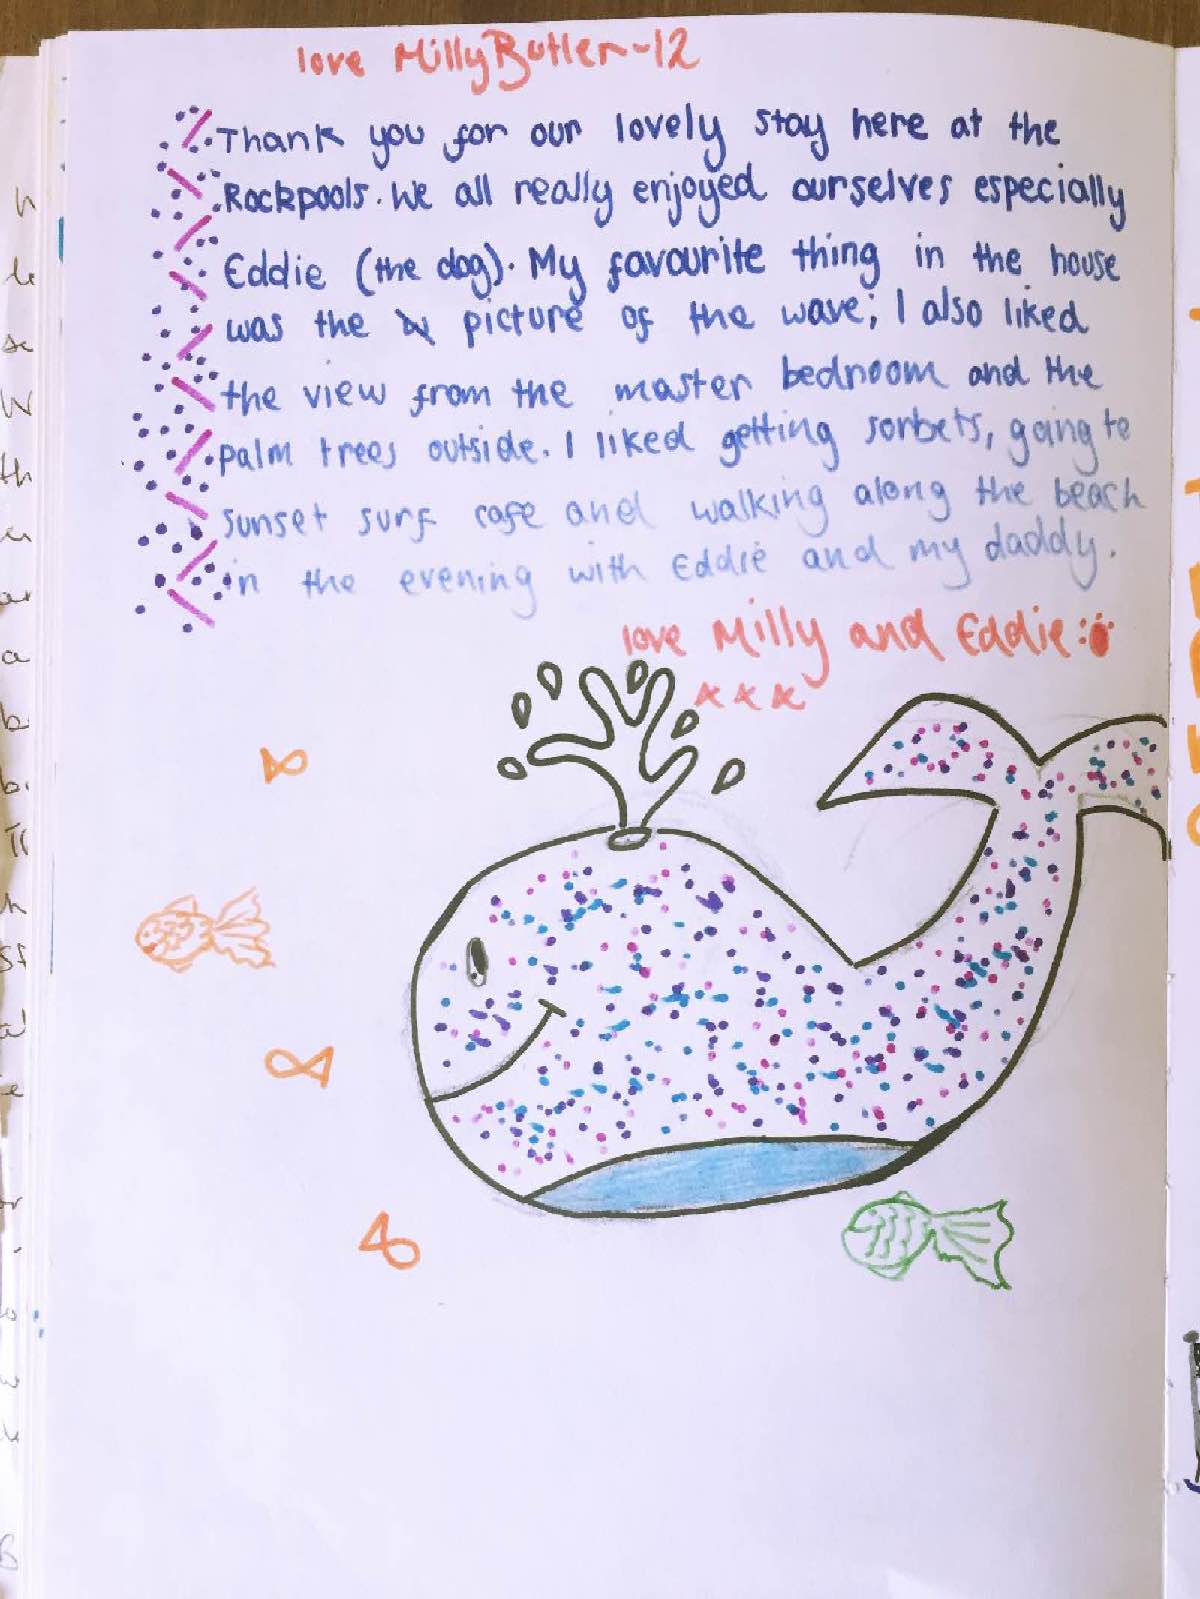 love Milly Butler-12
Thank you for our lovely stay here at the
Rockpools. We all really enjoyed ourselves especially
Eddie (the dog). My favourite thing in the house
was the picture of the wave; I also liked
the view from the master bedroom and the
palm trees outside. I liked getting sorbets, going to
sunset surf cafe and walking along the beach
in the evening with Eddie and my daddy.
love Milly and Eddie
xxx